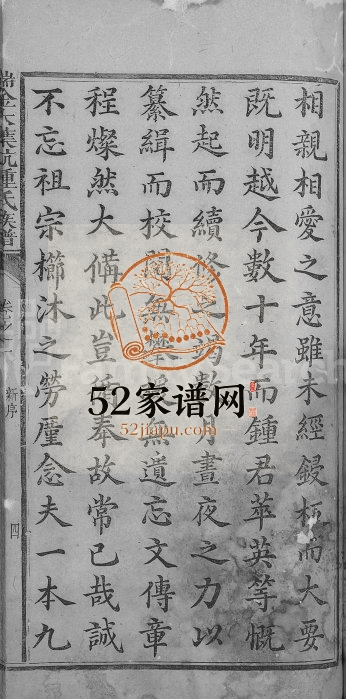 相親相愛之意雖未經鋟梓而大要
既明越今數十年而鍾君萃英等慨
然起而續修之 數 晝夜之力以
纂緝而校 無 無遺忘文傳章
程燦然大備此豈 奉故常已哉誠
不忘祖宗櫛沐之勞廑念夫一本九
瑞金 集 鍾氏族譜
卷之一
新序
四
52家谱网
52jiapu.com